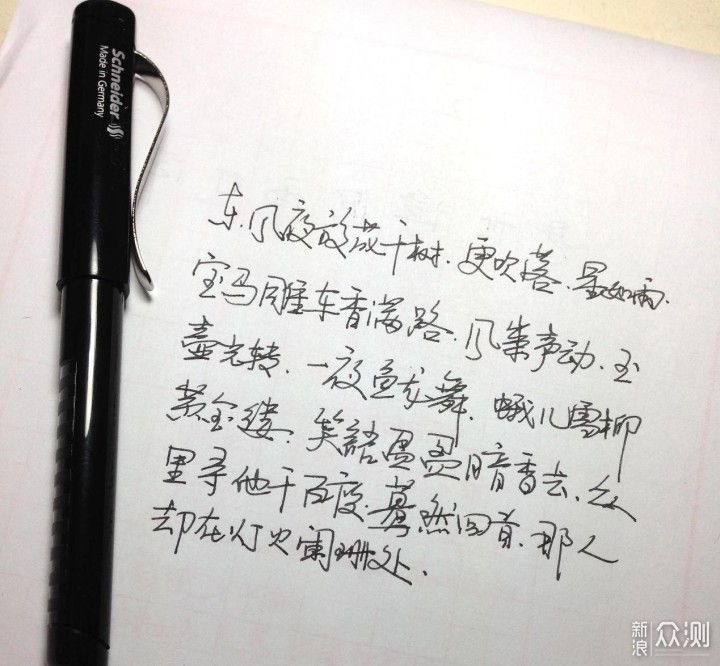 Schneider
Made in Germany
东风夜放花千树.更吹落.星如雨.
宝马雕车香满路.风来声动.玉
壶光转.一夜鱼龙舞.蛾儿雪柳
黄金缕.笑語盈盈暗香去.众
里寻他千百度.蓦然回首.那人
却在灯火阑珊处.
新浪众测